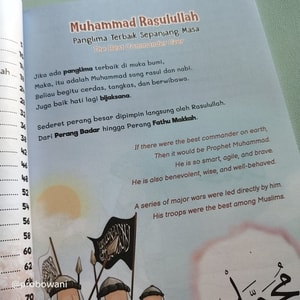 Muhammad Rasulullah
Panglima Terbaik Sepanjang Masa
The Best Commander Ever
Jika ada panglima terbaik di muka bumi,
Maka, itu adalah Muhammad sang rasul dan nabi.
Beliau begitu cerdas, tangkas, dan berwibawa.
Juga baik hati lagi bijaksana.
Sederet perang besar dipimpin langsung oleh Rasulullah.
Dari Perang Badar hingga Perang Fathu Makkah.
If there were the best commander on earth,
Then it would be Prophet Muhammad.
He is so smart, agile, and brave.
He is also benevolent, wise, and well-behaved.
A series of major wars were led directly by him.
His troops were the best among Muslims.
48
52
54
56
58
60
62
70
@probowani